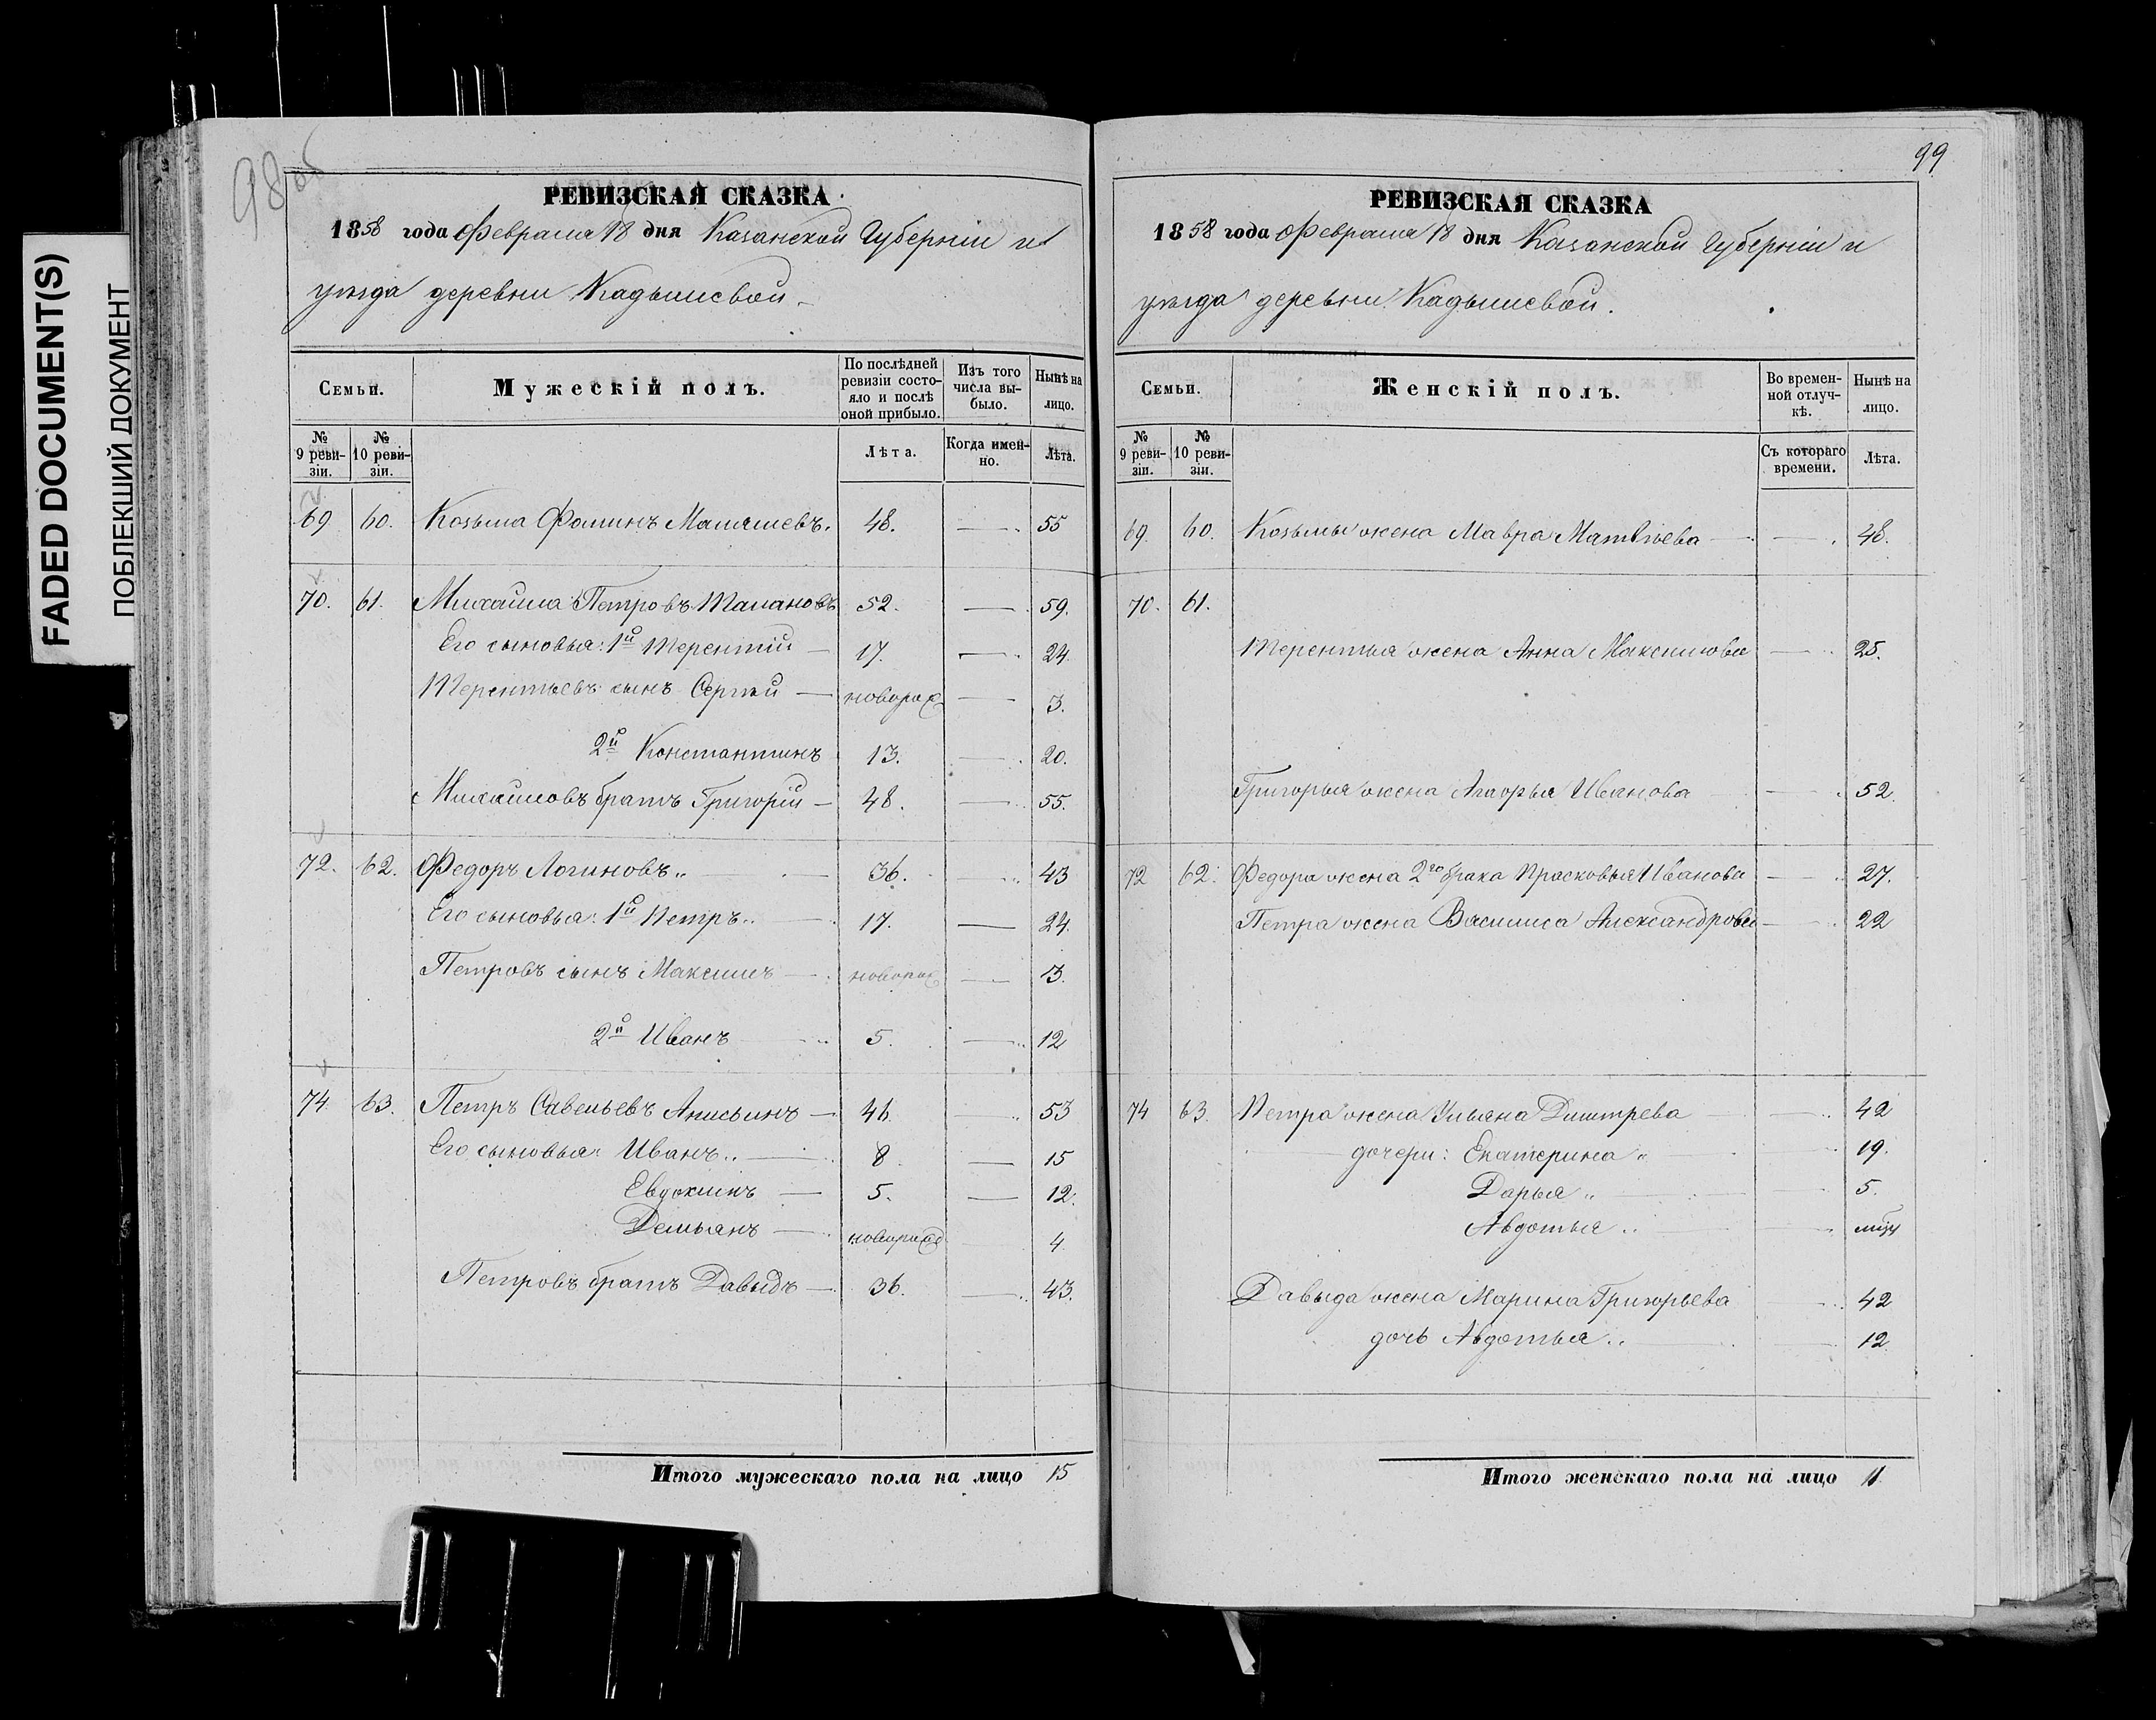 FADED DOCUMENT(S)
ПОБЛЕКШИЙ ДОКУМЕНТ
98 об
РЕВИЗСКАЯ СКАЗКА
1858 года Февраля 18 дня Казанской Губерніи и
уѣзда деревни Кадышевой
Семьи. Мужескій полъ. По послѣдней ревизіи состояло и послѣ оной прибыло. Изъ того числа выбыло. Нынѣ на лицо.
№ 9 ревизіи. № 10 ревизіи. Лѣта. Когда именно. Лѣта.
69 60. Козьма Фоминъ 48. — 55
70. 61. Михайла Петровъ 52. — 59.
Его сыновья: 1й Терентій — 17. — 24.
Терентьевъ сынъ Сергѣй — новорож — 3.
2й Константинъ 13. — 20.
Михайловъ братъ Григорій — 48. — 55.
72. 62. Федоръ Логиновъ — 36. — 43
Его сыновья: 1й Петръ — 17. — 24.
Петровъ сынъ Максимъ — новорож — 3.
2й Иванъ 5. — 12
74 63. Петръ Савельевъ Анисьинъ — 46. — 53
Его сыновья: Иванъ — 8 — 15
Евдокимъ — 5. — 12.
Демьянъ — новорожд 4
Петровъ братъ Давыдъ — 36. — 43.
Итого мужескаго пола на лицо 15
99
РЕВИЗСКАЯ СКАЗКА
1858 года Февраля 18 дня Казанской Губерніи и
уѣзда деревни Кадышевой.
Семьи. Женскій полъ. Во временной отлучкѣ. Нынѣ на лицо.
№ 9 ревизіи. № 10 ревизіи. Съ котораго времени. Лѣта.
69. 60. Козьмы жена Мавра Матвѣева — 48.
70. 61.
Терентья жена Анна Максимова — 25.
Григорья жена Иванова — 52
72 62. Федора жена 2го брака Прасковья Иванова — 27.
Петра жена Василиса Александрова — 22
74 63. Петра жена Ульяна Дмитрева — 42
дочери: Екатерина — 19.
Дарья — 5.
Авдотья —
Давыда жена Марина Григорьева 42
дочь Авдотья — 12
Итого женскаго пола на лицо 11